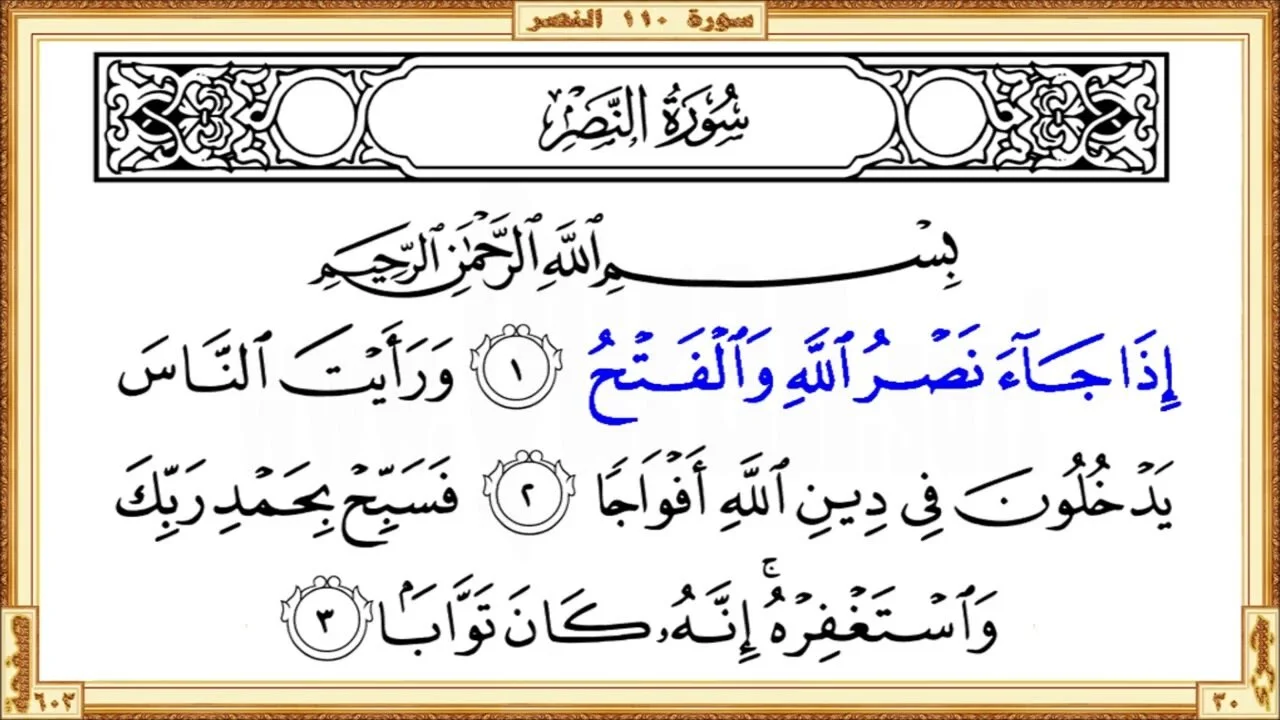 سورة ١١٠ النصر
سُورَةُ النَّصْرِ
بِسْمِ ٱللَّهِ ٱلرَّحْمَٰنِ ٱلرَّحِيمِ
إِذَا جَآءَ نَصْرُ ٱللَّهِ وَٱلْفَتْحُ ١ وَرَأَيْتَ ٱلنَّاسَ
يَدْخُلُونَ فِى دِينِ ٱللَّهِ أَفْوَاجًا ٢ فَسَبِّحْ بِحَمْدِ رَبِّكَ
وَٱسْتَغْفِرْهُ ۚ إِنَّهُۥ كَانَ تَوَّابًۢا ٣
جزء ٣٠
صفحة ٦٠٣